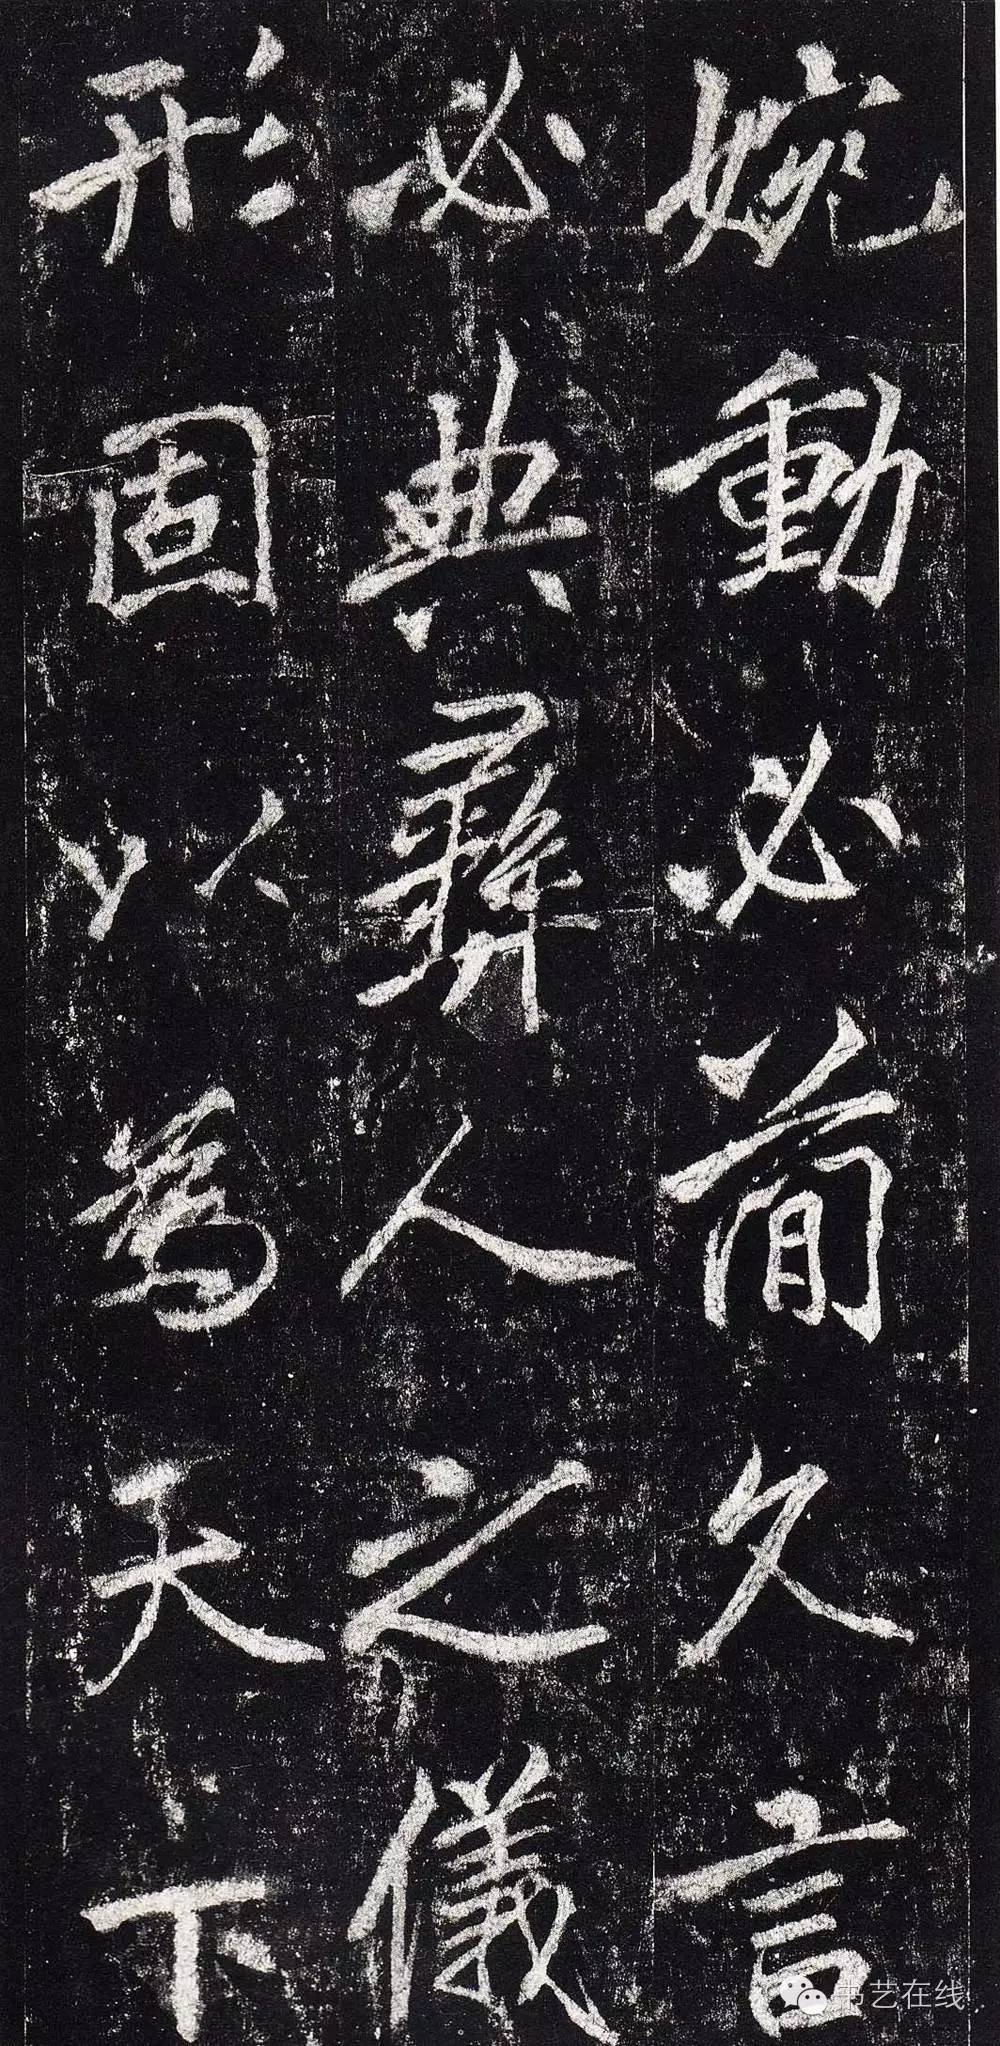 婉動必簡久言
必典彝人之儀
形固以為天下
书艺在线